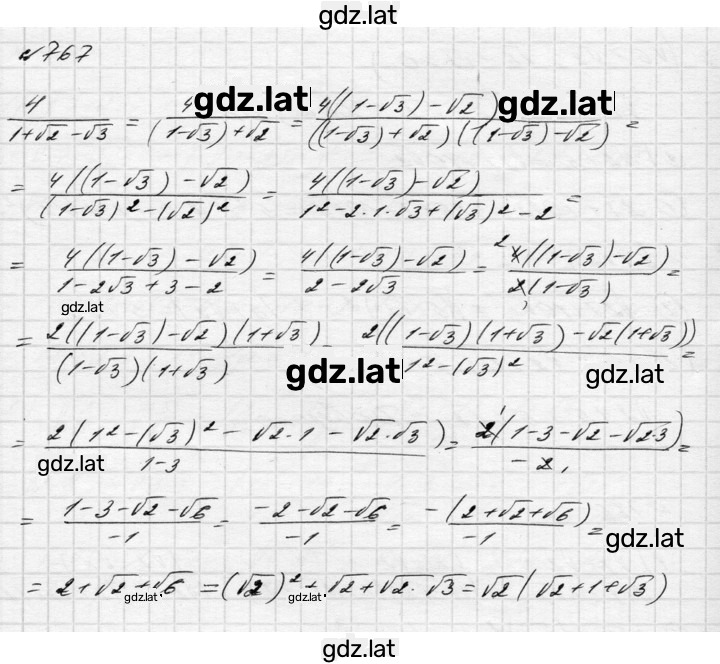 gdz.lat
№767
4/(1+√2-√3) = 4/((1-√3)+√2) = 4((1-√3)-√2)/(((1-√3)+√2)((1-√3)-√2)) =
gdz.lat gdz.lat
= 4((1-√3)-√2)/((1-√3)²-(√2)²) = 4((1-√3)-√2)/(1²-2·1·√3+(√3)²-2) =
= 4((1-√3)-√2)/(1-2√3+3-2) = 4((1-√3)-√2)/(2-2√3) = ² 4((1-√3)-√2)/(2(1-√3)) =
gdz.lat
= 2((1-√3)-√2)(1+√3)/((1-√3)(1+√3)) = 2((1-√3)(1+√3)-√2(1+√3))/(1²-(√3)²) =
gdz.lat gdz.lat
= 2(1²-(√3)²-√2·1-√2·√3)/(1-3) = 2(1-3-√2-√2·3)/(-2) =
gdz.lat
= (1-3-√2-√6)/(-1) = (-2-√2-√6)/(-1) = -(2+√2+√6)/(-1) =
gdz.lat
= 2+√2+√6 = (√2)²+√2+√2·√3 = √2(√2+1+√3)
gdz.lat gdz.lat
gdz.lat